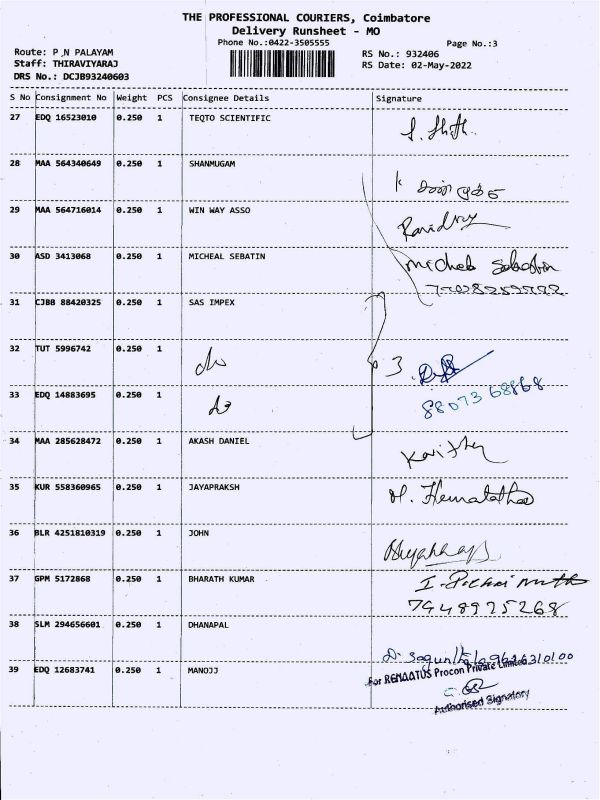 THE PROFESSIONAL COURIERS, Coimbatore
Delivery Runsheet - MO
Phone No.:0422-3505555
Page No.:3
Route: P ,N PALAYAM
Staff: THIRAVIYARAJ
DRS No.: DCJB93240603
RS No.: 932406
RS Date: 02-May-2022
S No Consignment No Weight PCS Consignee Details Signature
27 EDQ 16523010 0.250 1 TEQTO SCIENTIFIC
28 MAA 564340649 0.250 1 SHANMUGAM
29 MAA 564716014 0.250 1 WIN WAY ASSO
30 ASD 3413068 0.250 1 MICHEAL SEBATIN
31 CJBB 88420325 0.250 1 SAS IMPEX
32 TUT 5996742 0.250 1 do
3
33 EDQ 14883695 0.250 1 do
88073 68868
34 MAA 285628472 0.250 1 AKASH DANIEL
35 KUR 558360965 0.250 1 JAYAPRAKSH M. Hemalatha
36 BLR 4251810319 0.250 1 JOHN
37 GPM 5172868 0.250 1 BHARATH KUMAR
7448975268
38 SLM 294656601 0.250 1 DHANAPAL
39 EDQ 12683741 0.250 1 MANOJJ
For RENAATUS Procon Private Limited
Authorised Signatory